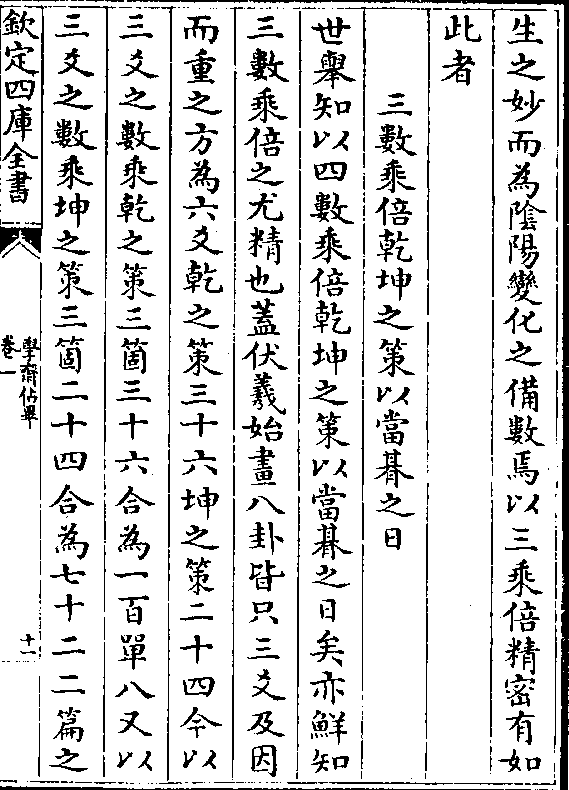 生之妙而為陰陽變化之備數焉以三乘倍精密有如
此者
三數乘倍乾坤之策以當朞之日
世舉知以四數乘倍乾坤之策以當朞之日矣亦鮮知
三數乘倍之尤精也蓋伏羲始畫八卦皆只三爻及因
而重之方為六爻乾之策三十六坤之策二十四今以
三爻之數乘乾之策三箇三十六合為一百單八又以
三爻之數乘坤之策三箇二十四合為七十二二篇之
欽定四庫全書
學齋佔畢
卷一
十一